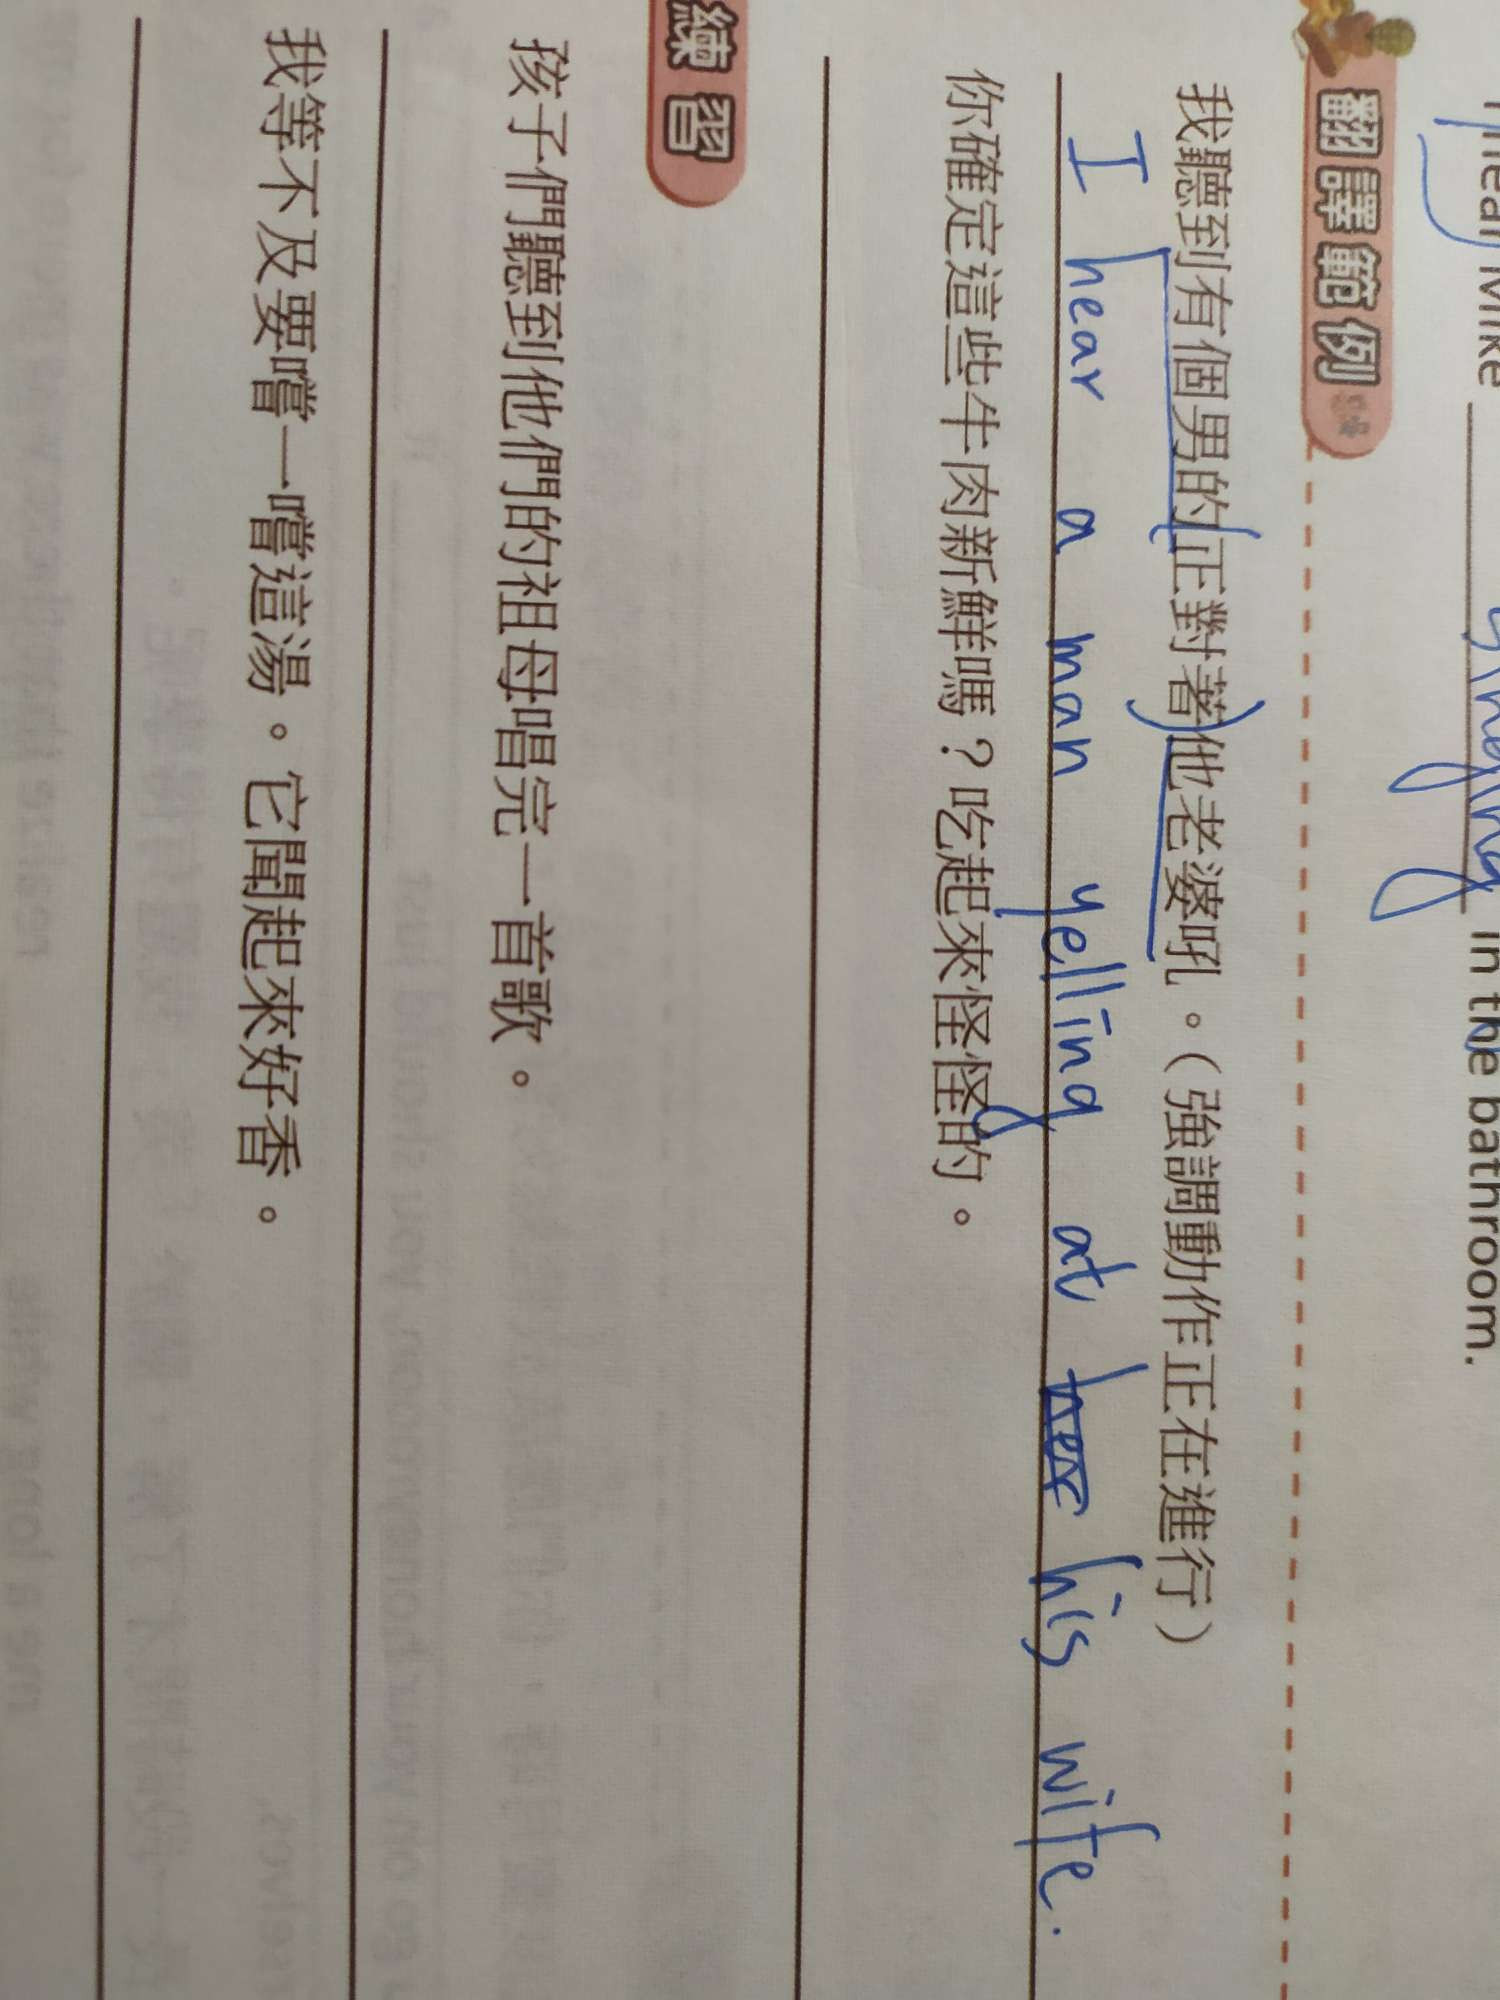 Mike singing in the bathroom.
翻譯範例
我聽到有個男的正對著他老婆吼。(強調動作正在進行)
I hear a man yelling at his wife.
你確定這些牛肉新鮮嗎？吃起來怪怪的。
練習
孩子們聽到他們的祖母唱完一首歌。
我等不及要嚐一嚐這湯。它聞起來好香。